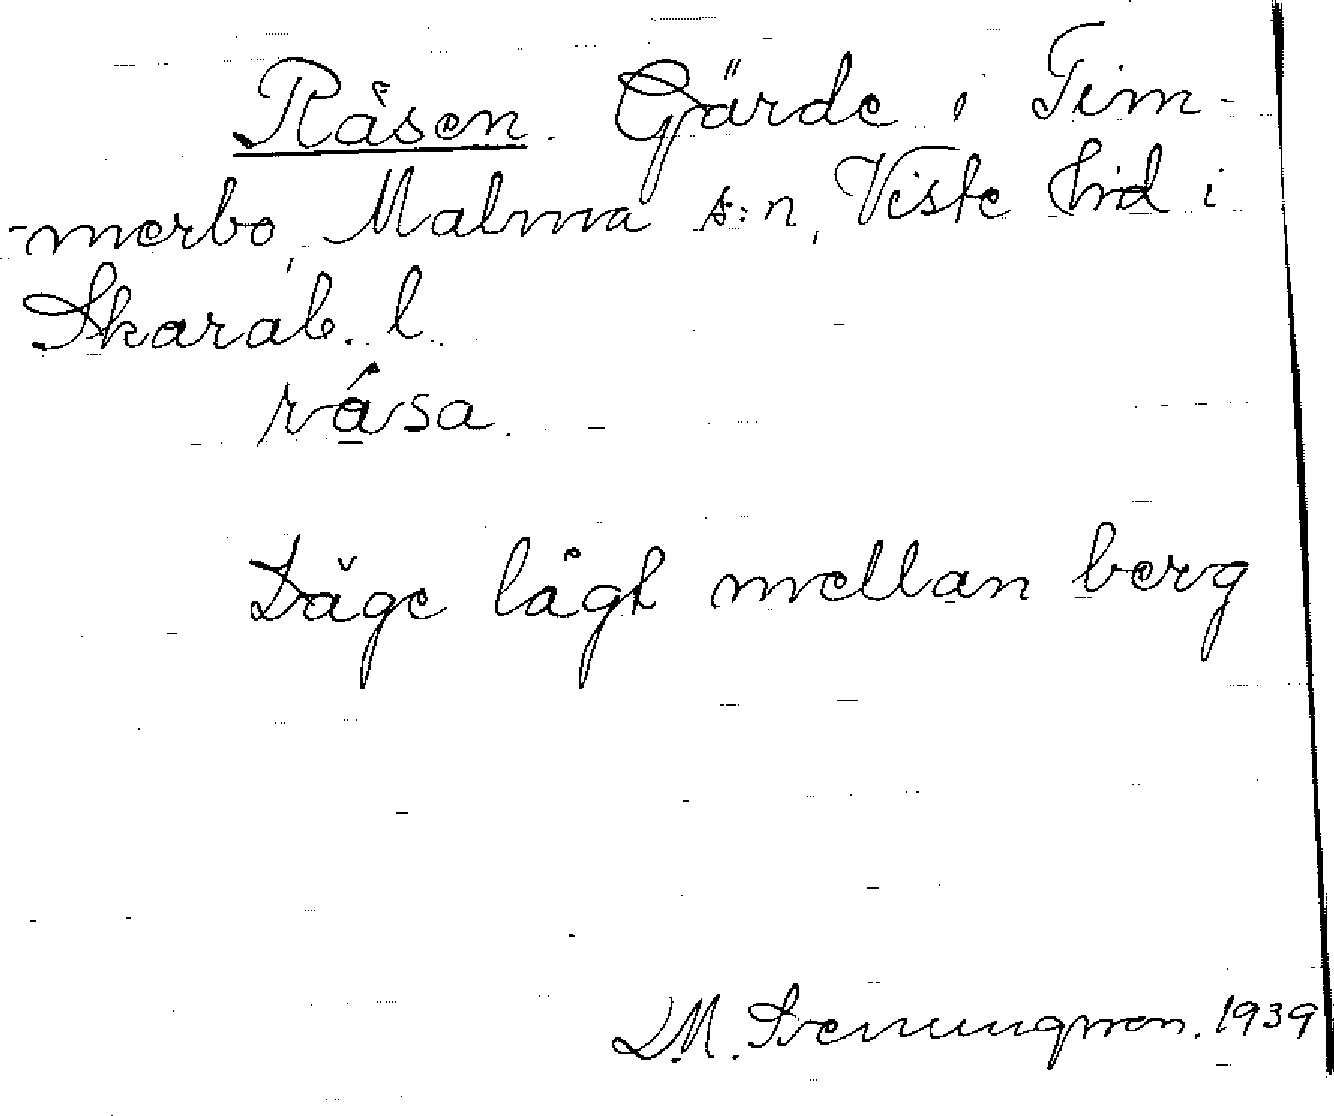 Råsen. Gärde i Tim-
-merbo, Malma s:n, Viste hd i
Skarab. l.
råsa.
Läge lågt mellan berg
M. Svenungsson. 1939